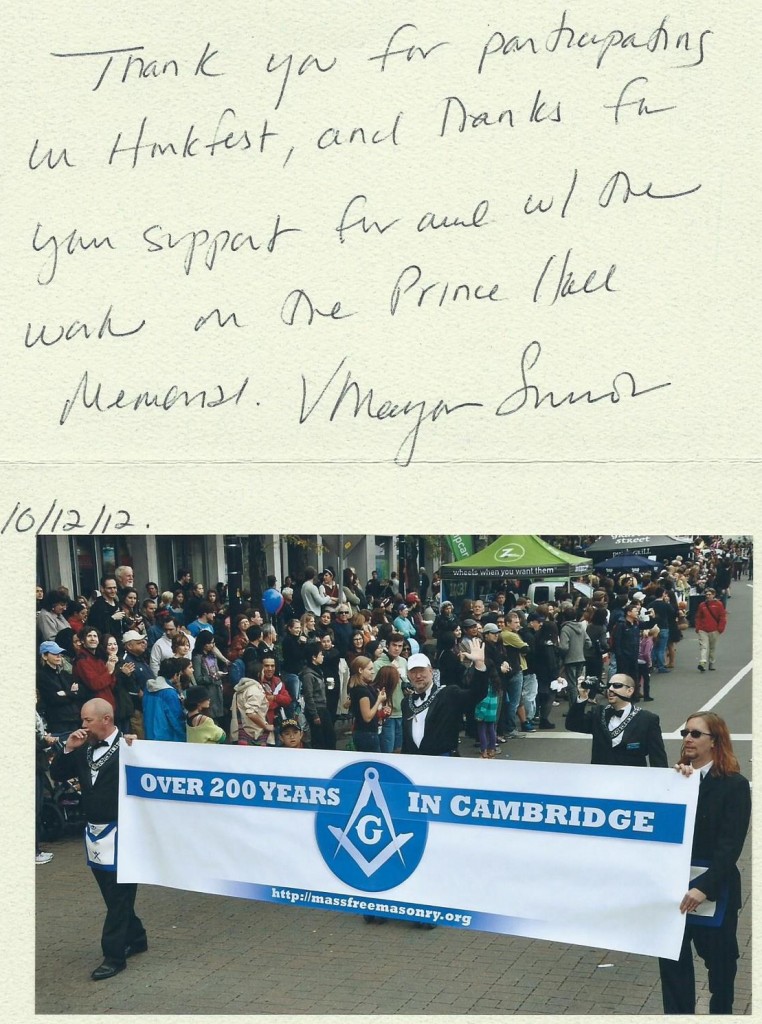 Thank you for participating
in Honkfest, and thanks for
your support for and w/ the
work on the Prince Hall
Memorial. VMayor Simmons
10/12/12.
wheels when you want them
OVER 200 YEARS G IN CAMBRIDGE
http://massfreemasonry.org